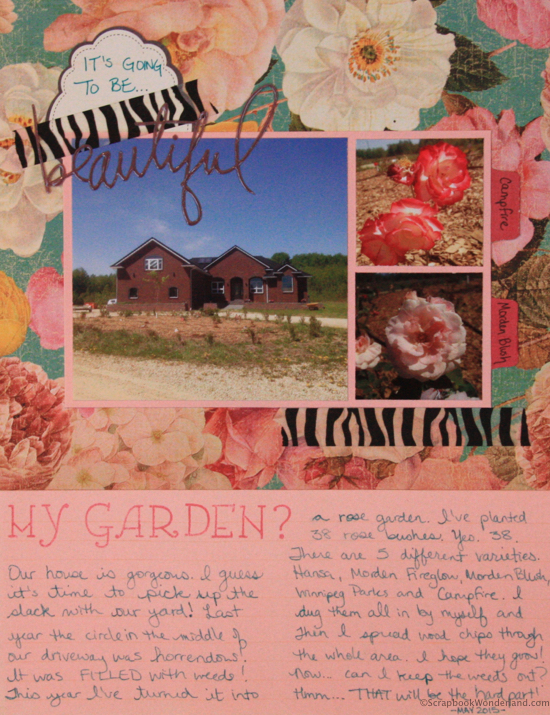 IT'S GOING
TO BE...
beautiful
Campfire
Morden Blush
MY GARDEN?
Our house is gorgeous. I guess
it's time to pick up the
slack with our yard! Last
year the circle in the middle of
our driveway was horrendous.
It was FILLED with weeds!
This year I've turned it into
a rose garden. I've planted
38 rose bushes. Yes. 38.
There are 5 different varieties.
Hansa, Morden Fireglow, Morden Blush,
Winnipeg Parks and Campfire. I
dug them all in by myself and
then I spread wood chips through
the whole area. I hope they grow!
Now... can I keep the weeds out?
Hmm... THAT will be the hard part!
-MAY 2015-
©ScrapbookWonderland.com